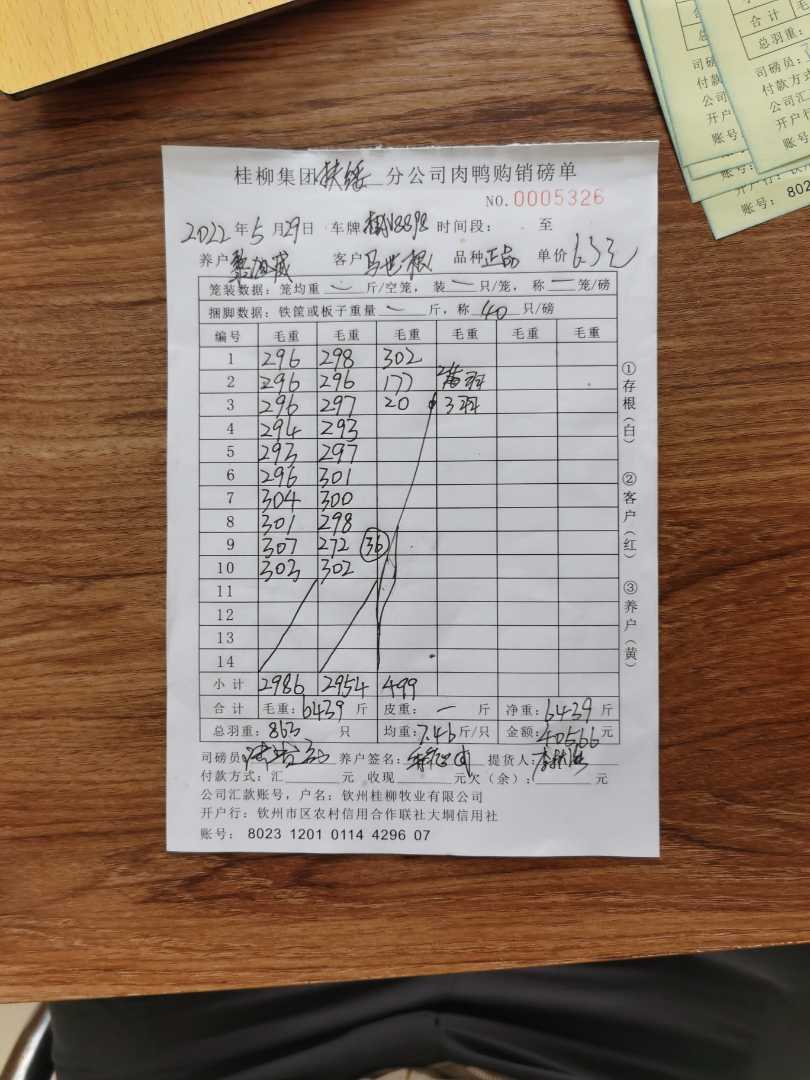 桂柳集团扶绥分公司肉鸭购销磅单
NO.0005326
2022年5月29日 车牌 8898 时间段: 至
养户 客户 马世根 品种 正品 单价 6.3元
笼装数据: 笼均重 一 斤/空笼, 装 一 只/笼, 称 一 笼/磅
捆脚数据: 铁筐或板子重量 一 斤, 称 40 只/磅
编号 毛重 毛重 毛重 毛重 毛重 毛重
1 296 298 302
2 296 296 177 羽
3 296 297 20 3羽
4 294 293
5 293 297
6 296 301
7 304 300
8 301 298
9 307 272 36
10 303 302
11
12
13
14
小计 2986 2954 499
合计 毛重: 6439 斤 皮重: 一 斤 净重: 6439 斤
总羽重: 863 只 均重: 7.46 斤/只 金额: 40566 元
司磅员: 养户签名: 提货人:
付款方式: 汇 元 收现 元 欠(余): 元
公司汇款账号, 户名: 钦州桂柳牧业有限公司
开户行: 钦州市区农村信用合作联社大垌信用社
账号: 8023 1201 0114 4296 07
①存根(白) ②客户(红) ③养户(黄)
合计
总羽重:
司磅员:
付款方式
公司
开户
账号
合计 毛
总羽重:
司磅员:
付款方式
公司汇
开户行
账号
开户行:
账号: 802